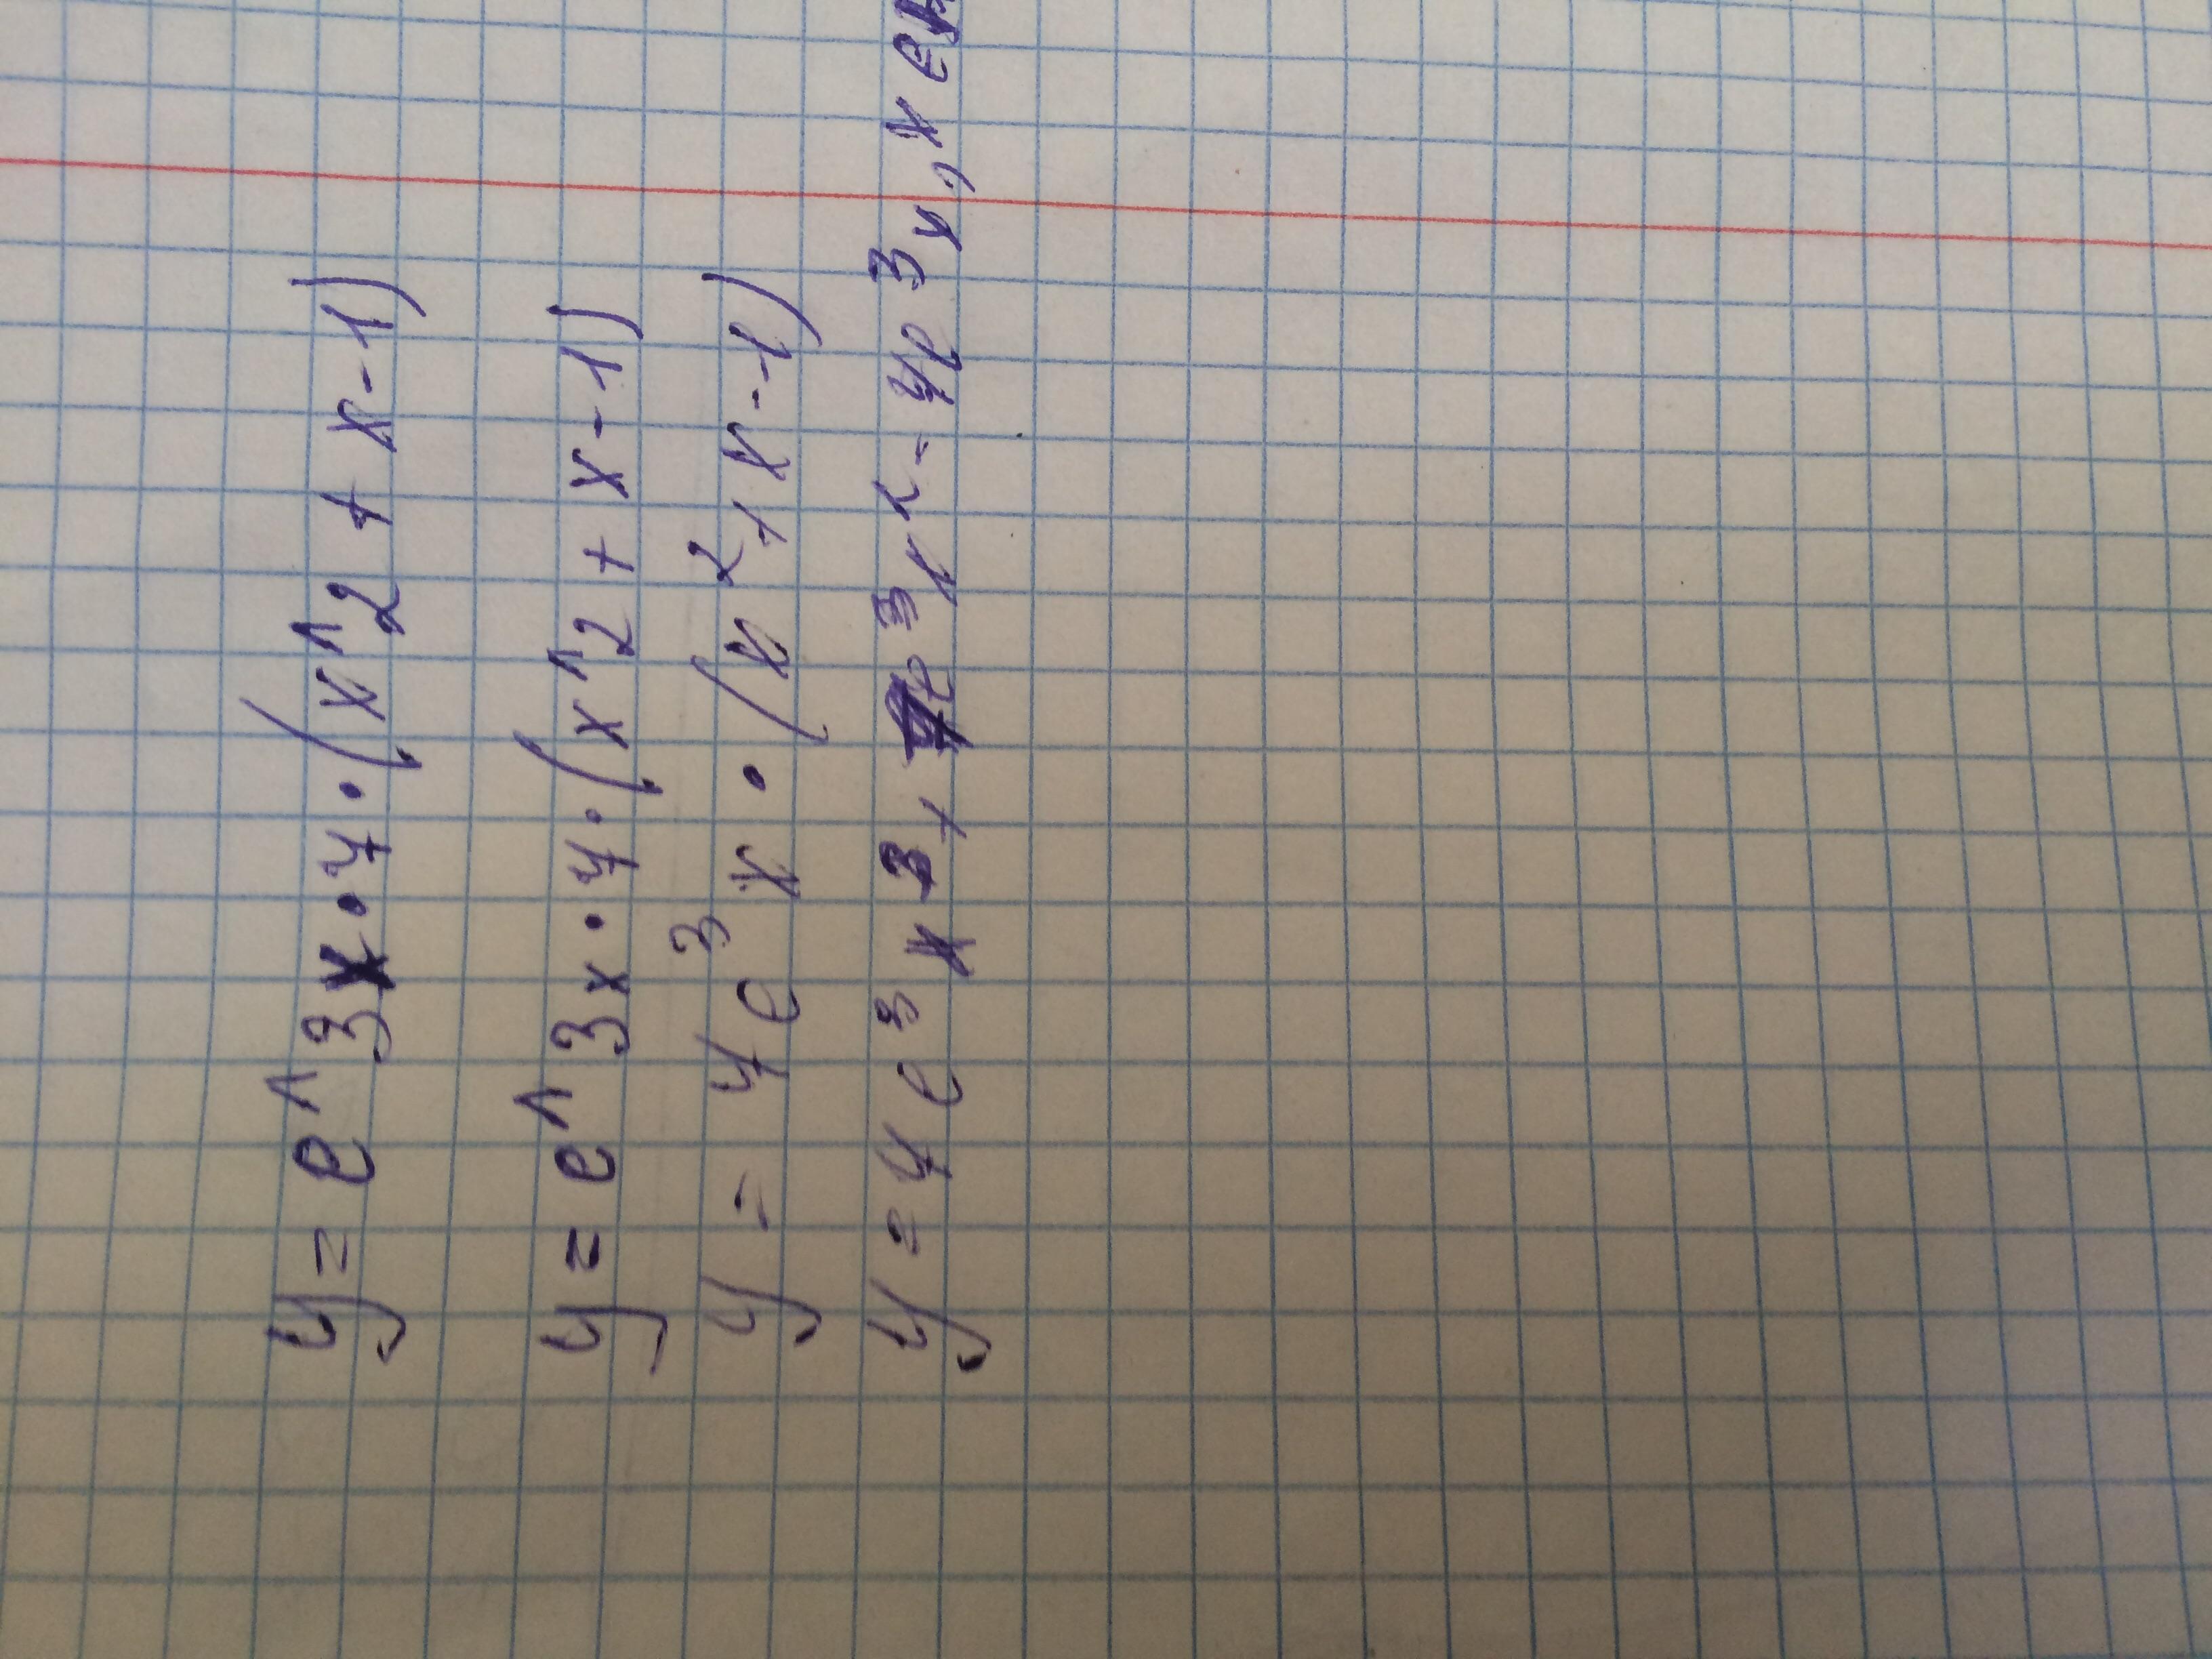 y = e^3x · 4 · (x^2 + x - 1)
y = e^3x · 4 · (x^2 + x - 1)
y = 4e³x · (x² + x - 1)
y = 4e³x³ + 4e³x² - 4e³x, x ∈